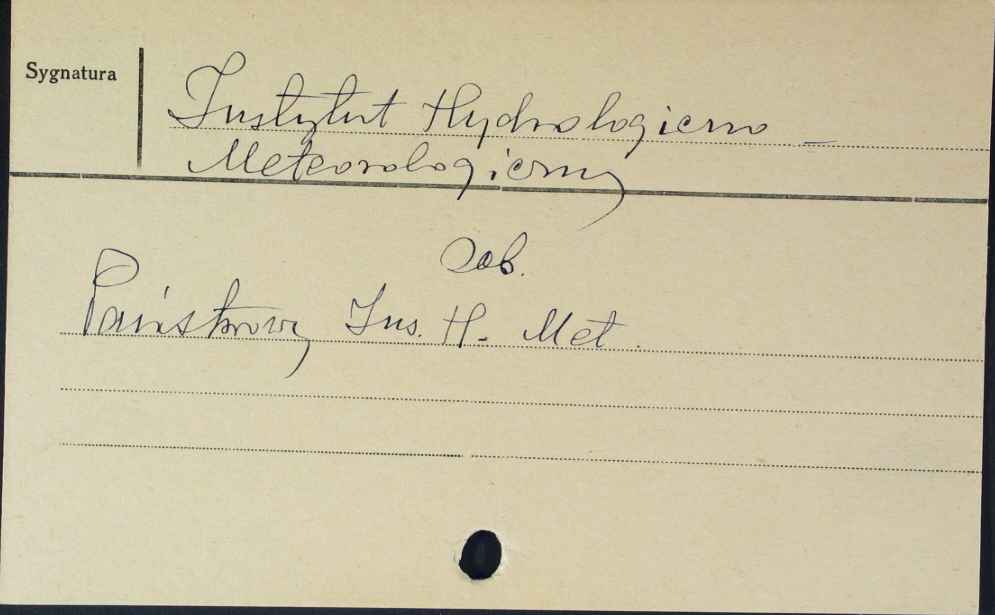 Sygnatura
Instytut Hydrologiczno -
Meteorologiczny
Zob.
Państwowy Ins. H. Met.